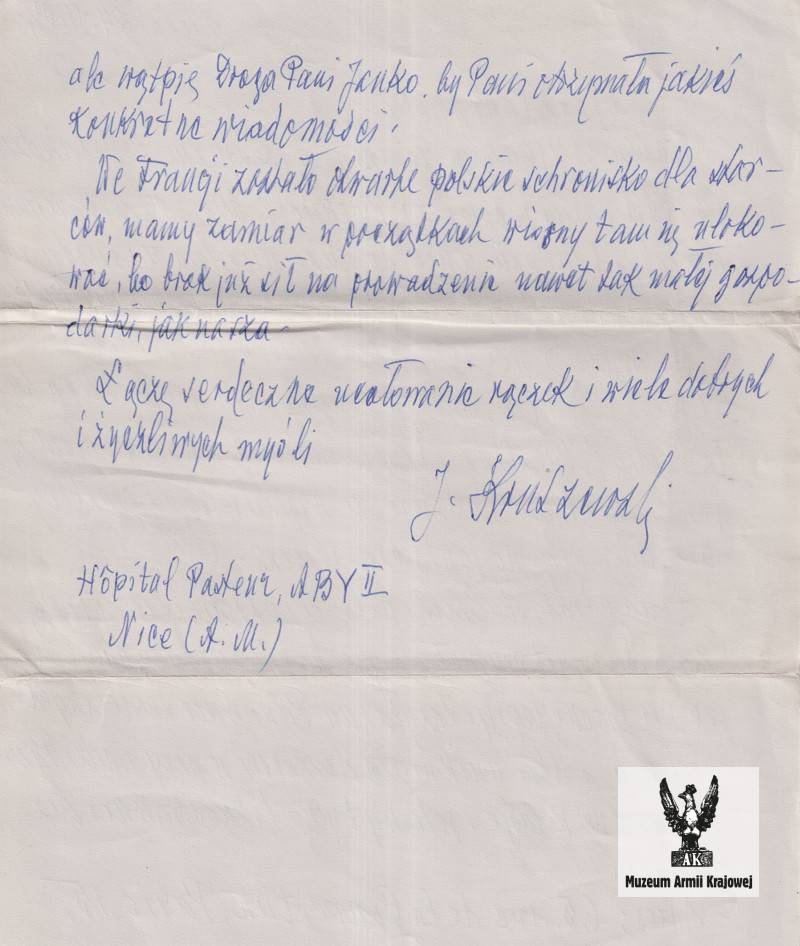 ale wątpię Droga Pani Janko. by Pani otrzymała jakieś
konkretne wiadomości.
We Francji zostało otwarte polskie schronisko dla star-
ców, mamy zamiar w początkach wiosny tam się uloko-
wać, bo brak już sił na prowadzenie nawet tak małej gospo-
darki, jak nasza.
Łączę serdeczne ucałowania rączek i wiele dobrych
i życzliwych myśli
J.
Hôpital Pasteur, ABY II
Nice (A. M.)
AK
Muzeum Armii Krajowej